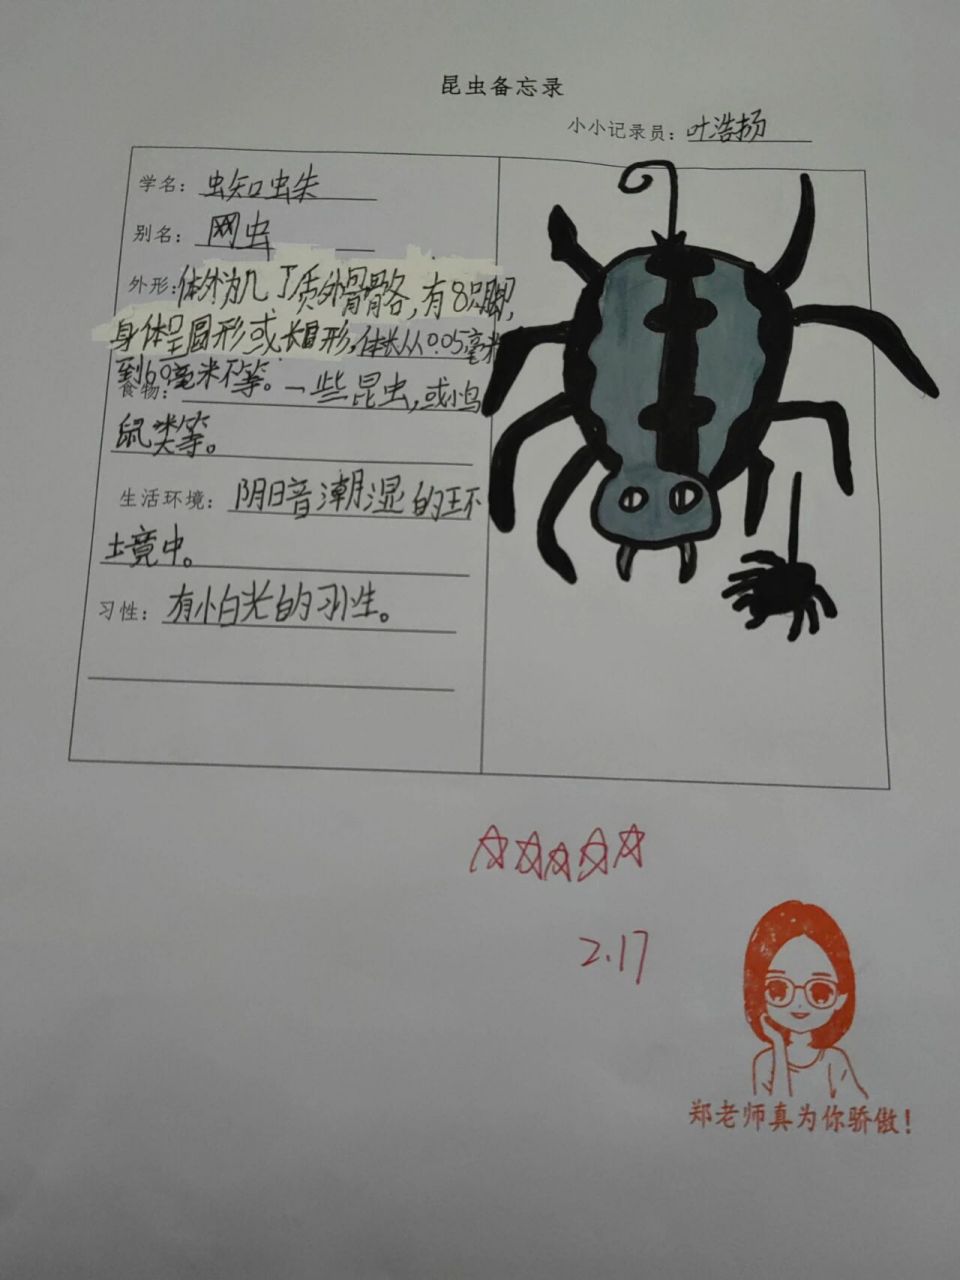 昆虫备忘录
小小记录员：叶浩扬
学名：蜘蛛
别名：网虫
外形：体外为几丁质外骨骼，有8只脚，
身体呈圆形或长圆形，体长从0.05毫米
到60毫米不等。
食物：一些昆虫，或小鸟
鼠类等。
生活环境：阴暗潮湿的环
境中。
习性：有小白光的习性。
2.17
郑老师真为你骄傲！